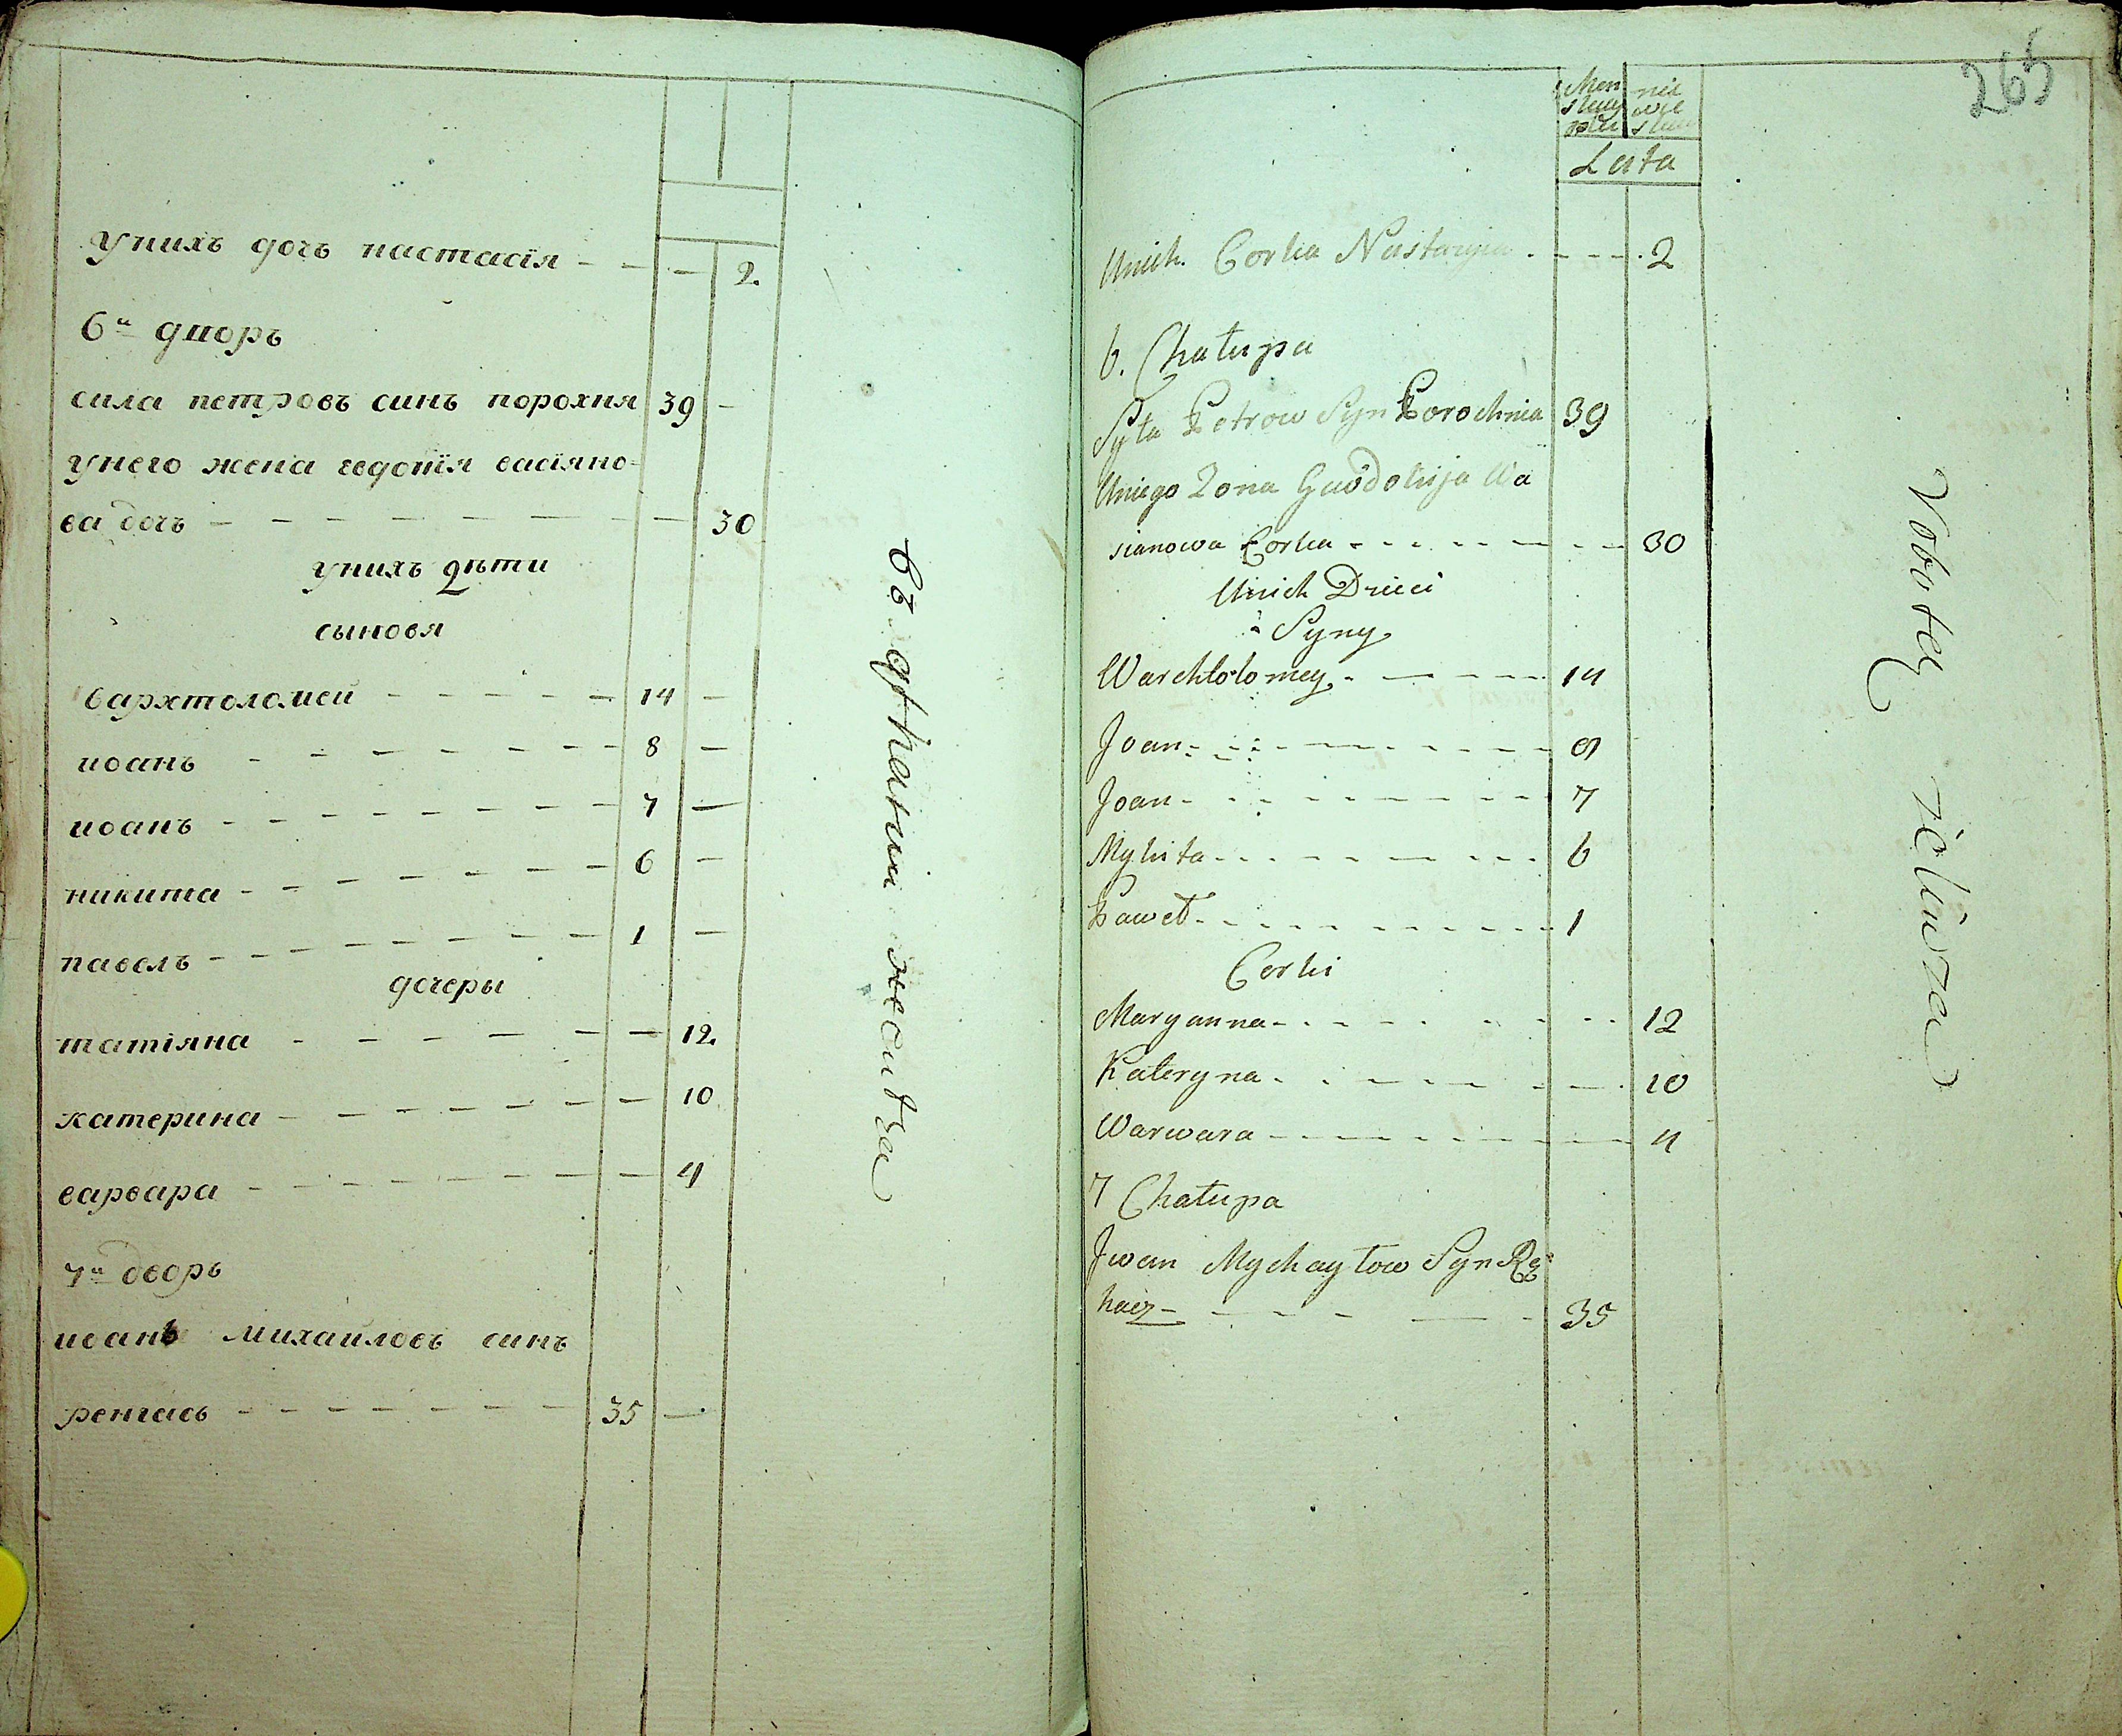 унихъ дочъ настасія - - - 2.
6й дворъ
сила петровъ синъ порохня 39 -
унего жена евдокія васіяно-
ва дочъ - - - - - - - - 30
унихъ дѣти
сыновя
вархтоломей - - - - - 14 -
иоанъ - - - - - - - 8 -
иоанъ - - - - - - - - 7 -
никита - - - - - - - 6 -
павелъ - - - - - - - - 1 -
дочеры
татіяна - - - - - 12.
катерина - - - - - - - 10
варвара - - - - - - - - 4
7й дворъ
иванъ михайловъ синъ
- - - - - - - 35 -
265
Men nie
skiey wie
płci skiey
Lata
Unich Corka Nastazyia - - - - 2
6. Chałupa
Syła Petrow Syn Porochnia 39
Uniego Zona Ewdokija Wa
sianowa Corka - - - - - - - 30
Unich Dzieci
Syny
Warchtołomey - - - - - 14
Joan - - - - - - - - - 8
Joan - - - - - - - - 7
Mykita - - - - - - - - 6
Paweł - - - - - - - - - 1
Corki
Maryanna - - - - - - - - 12
Kateryna - - - - - - - 10
Warwara - - - - - - - - - 4
7 Chałupa
Jwan Mychayłow Syn
- - - - - - 35